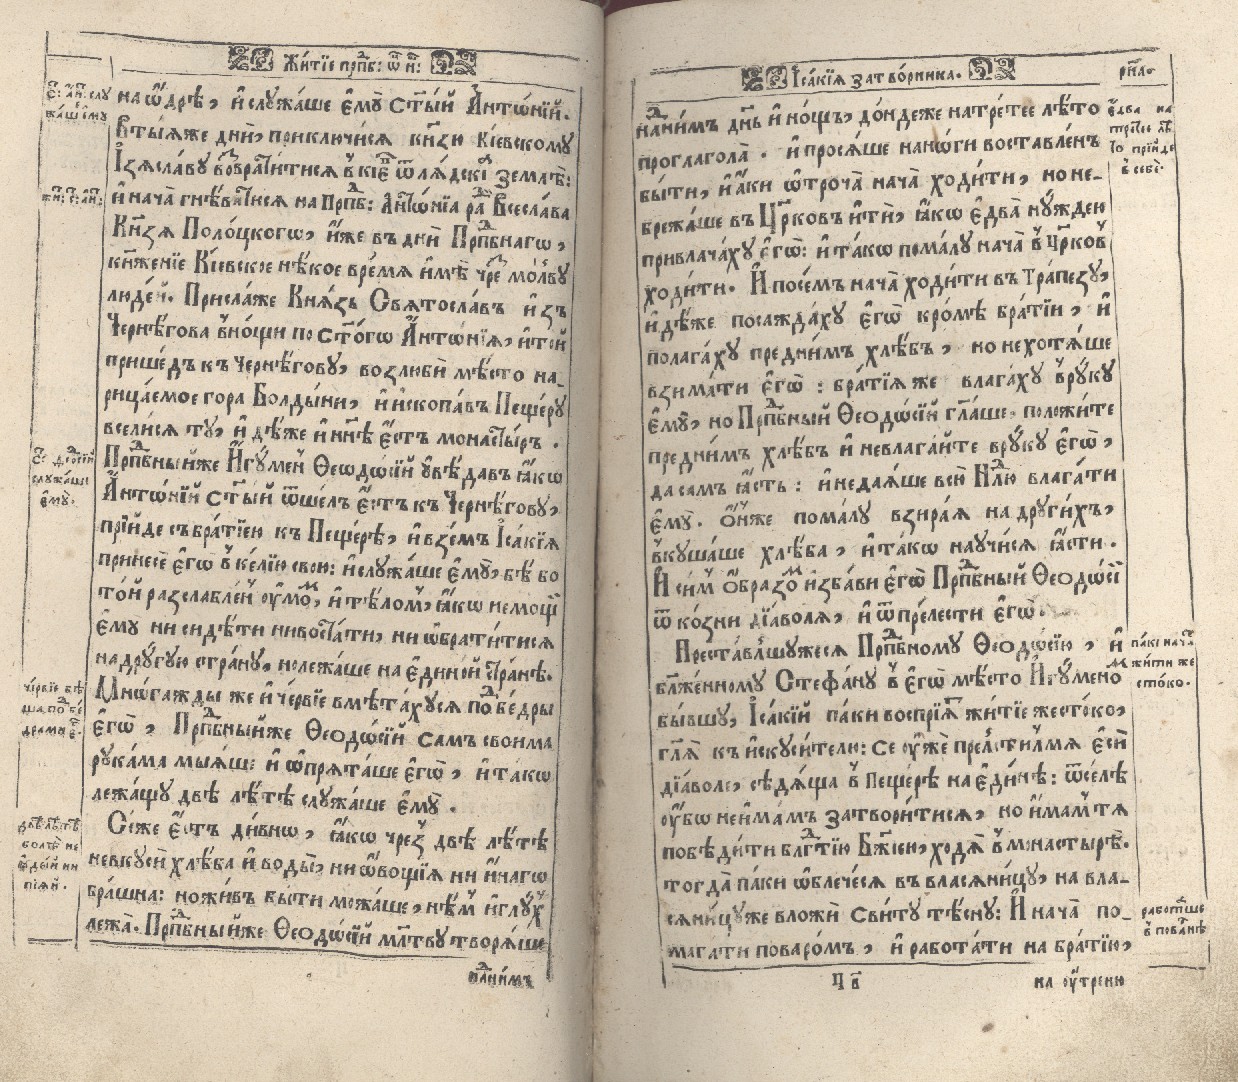 Житїе прпⷣб: ѡⷮ н҃:
на ѻ҆дрѣ̀, и҆ служа́ше є҆мꙋ̀ ст҃ы́й А҆нтѡ́нїй.
Втыѧже дни̑, приключи́сѧ кн҃зи Кі́евскому
І҆зѧсла́ву возврати́тисѧ в кі́евъ ѿ лѧ́дскїѧ землѣ̀:
и҆ нача̀ гнѣ́ватисѧ на Прпⷣб: А҆нтѡ́нїа ра́ди Всесла́ва
Кн҃зѧ Поло́цкогѡ, и҆́же въ дни̑ Прпⷣбнагѡ,
кнѧже́нїе Кі́евское нѣ́кое вре́мѧ и҆мѣ̀ чрез̾ мо́лву
люде́й. Присла́же Кнѧ́зь Свѧтосла́въ и҆зъ
Черне́гова в̾но́щи по ст҃о́гѡ А҆нтѡ́нїѧ, и҆ то́й
прише́дъ къ Черне́гову, возлюбѝ мѣ́сто на_
рица́емое гора Болды́ни, и҆ и҆скопа́въ Пеще́ру
всели́сѧ ту̀, и҆дѣ́же и҆ нн҃ѣ є҆́стъ монасты́ръ.
Прпⷣбныйже И҆гу́мен Ѳеодо́сїй ᲂу҆вѣ́давъ ꙗ҆́кѡ
А҆нтѡ́нїй ст҃ы́й ѿше́лъ є҆́стъ къ Черне́гову,
прїи́де съ бра́тїею къ Пеще́рѣ, и҆ взе́мъ І҆са́кїѧ
принесѐ є҆го̀ в̾ ке́лїю свою̀: и҆ служа́ше є҆мꙋ̀, бѣ̀ бо
то́й разсла́бленъ ᲂу҆мо́мъ, и҆ тѣ́ломъ, ꙗ҆́кѡ не мощѝ
є҆му̀ ни сидѣ́ти ни воста́ти, ни ѡ҆брати́тисѧ
на дру́гую страну̀, но лежа́ше на є҆ди́ной странѣ̀.
Мно́гажды же и҆ че́рвїе вмѣта́хусѧ по́д бе́дры
є҆гѡ̀, Прпⷣбныйже Ѳеодо́сїй самъ свои́ма
рука́ма мы́ѧше и҆ ѡ҆прѧта́ше є҆го̀, и҆ та́кѡ
лежа́щу двѣ̀ лѣ́тѣ служа́ше є҆мꙋ̀.
Се́же є҆́стъ ди́внѡ, ꙗ҆́кѡ чрез̾ двѣ̀ лѣ́тѣ
не вкусѝ хлѣ́ба и҆ воды̀, ни ѻ҆во́щїѧ ни и҆на́гѡ
бра́шна: но жи́въ бы́ти можа́ше, нѣ́мъ и҆ глу́хъ
лежа̀. Прпⷣбныйже Ѳеодо́сїй мл҃тву творѧ́ше
над ни́мъ
є҆му̀.
че́рвїе бѣ
двѣ̀ лѣ́тѣ
І҆са́кїѧ затво́рника.
рн҃а.
над ни́мъ дн҃ь и҆ но́щъ, до́ндеже на тре́тее лѣ́то
проглаго́ла. и҆ просѧ́ше на но́ги воста́вленъ
бы́ти, и҆ а҆́ки ѻ҆троча̀ нача̀ ходи́ти, но не_
брежа́ше въ Цр҃ковъ и҆тѝ, ꙗ҆́кѡ є҆два̀ ну́ждею
привлача́ху є҆го̀: и҆ та́кѡ пома́лу нача̀ в̾ Цр҃ковъ
ходи́ти. И҆ посе́мъ нача̀ ходи́ти въ Тра́пезу,
и҆дѣ́же посажда́ху є҆го̀ кро́мѣ бра́тїи, и҆
полага́ху пред ни́мъ хлѣ́бъ, но не хотѧ́ше
взима́ти є҆го̀: бра́тїѧ же влага́ху в̾ ру́ку
є҆му̀, но Прпⷣбный Ѳеодо́сїй гл҃аше, положи́те
пред ни́мъ хлѣ́бъ и҆ не влага́йте в ру́ку є҆гѡ̀,
да самъ ꙗ҆́стъ: и҆ не даѧ́ше всю̀ Нлⷣю влага́ти
є҆му̀. ѻ҆́нже пома́лу взира́ѧ на други́хъ,
в̾куша́ше хлѣ́ба, и҆ та́кѡ научи́сѧ ꙗ҆́сти.
И҆ си́мъ ѻ҆́бразомъ и҆зба́ви є҆го̀ Прпⷣбный Ѳеодо́сїй
ѿ ко́зни дїа́волѧ, и҆ ѿ пре́лести є҆гѡ̀.
Преста́вльшужесѧ Прпⷣбному Ѳеодо́сїю, и҆
бл҃же́нному Стефа́ну в̾ є҆гѡ̀ мѣ́сто И҆гу́меномъ
бы́вшу, І҆са́кїй па́ки воспрїѧ́тъ житїе же́стоко,
гл҃ѧ къ и҆скуси́телю: се ᲂу҆жѐ прелсти́лъ мѧ є҆сѝ
дїа́воле, сѣдѧ́ща в̾ пеще́рѣ на є҆ди́нѣ: ѿсе́лѣ
ᲂу҆́бѡ не и҆́мамъ затвори́тисѧ, но и҆́мам тѧ
побѣди́ти бл҃гтїю Бж҃їею, ходѧ̀ в̾ монастырѣ̀.
тогда̀ па́ки ѡ҆блече́сѧ въ власѧни́цу, на вла_
сѧни́цуже вложѝ сви́ту тѣ́сну: И҆ нача̀ по_
магати поваро́мъ, и҆ рабо́тати на бра́тїю,
па́ки нача̀
жи́ти же
сто́ко.
работа́ше
в̾ пова́рнѣ
Ч в҃
на ᲂу҆́треню